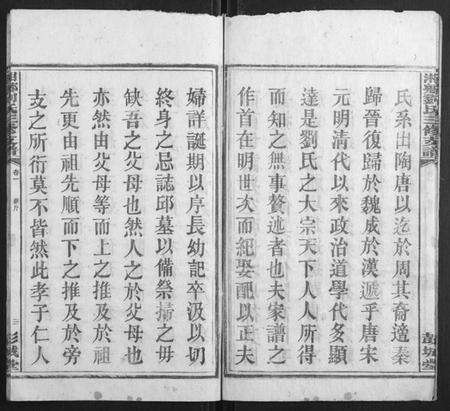 湘鄉劉氏三修支譜
彭城堂
氏系出陶唐以迄於周其裔適秦
歸晉復歸於魏成於漢遞乎唐宋
元明清代以來政治道學代多顯
達是劉氏之大宗天下人人所得
知之無事贅述者也夫家譜之
作首在明世次而紀娶配以正夫
婦詳誕期以序長幼記卒汲以切
終身之忌誌邱墓以備祭掃之毋
缺吾之父母也然人之於父母也
亦然由父母等而上之推及於祖
先更由祖先順而下之推及於旁
支之所衍莫不皆然此孝子仁人
湘鄉劉氏三修支譜
卷一
三
彭城堂